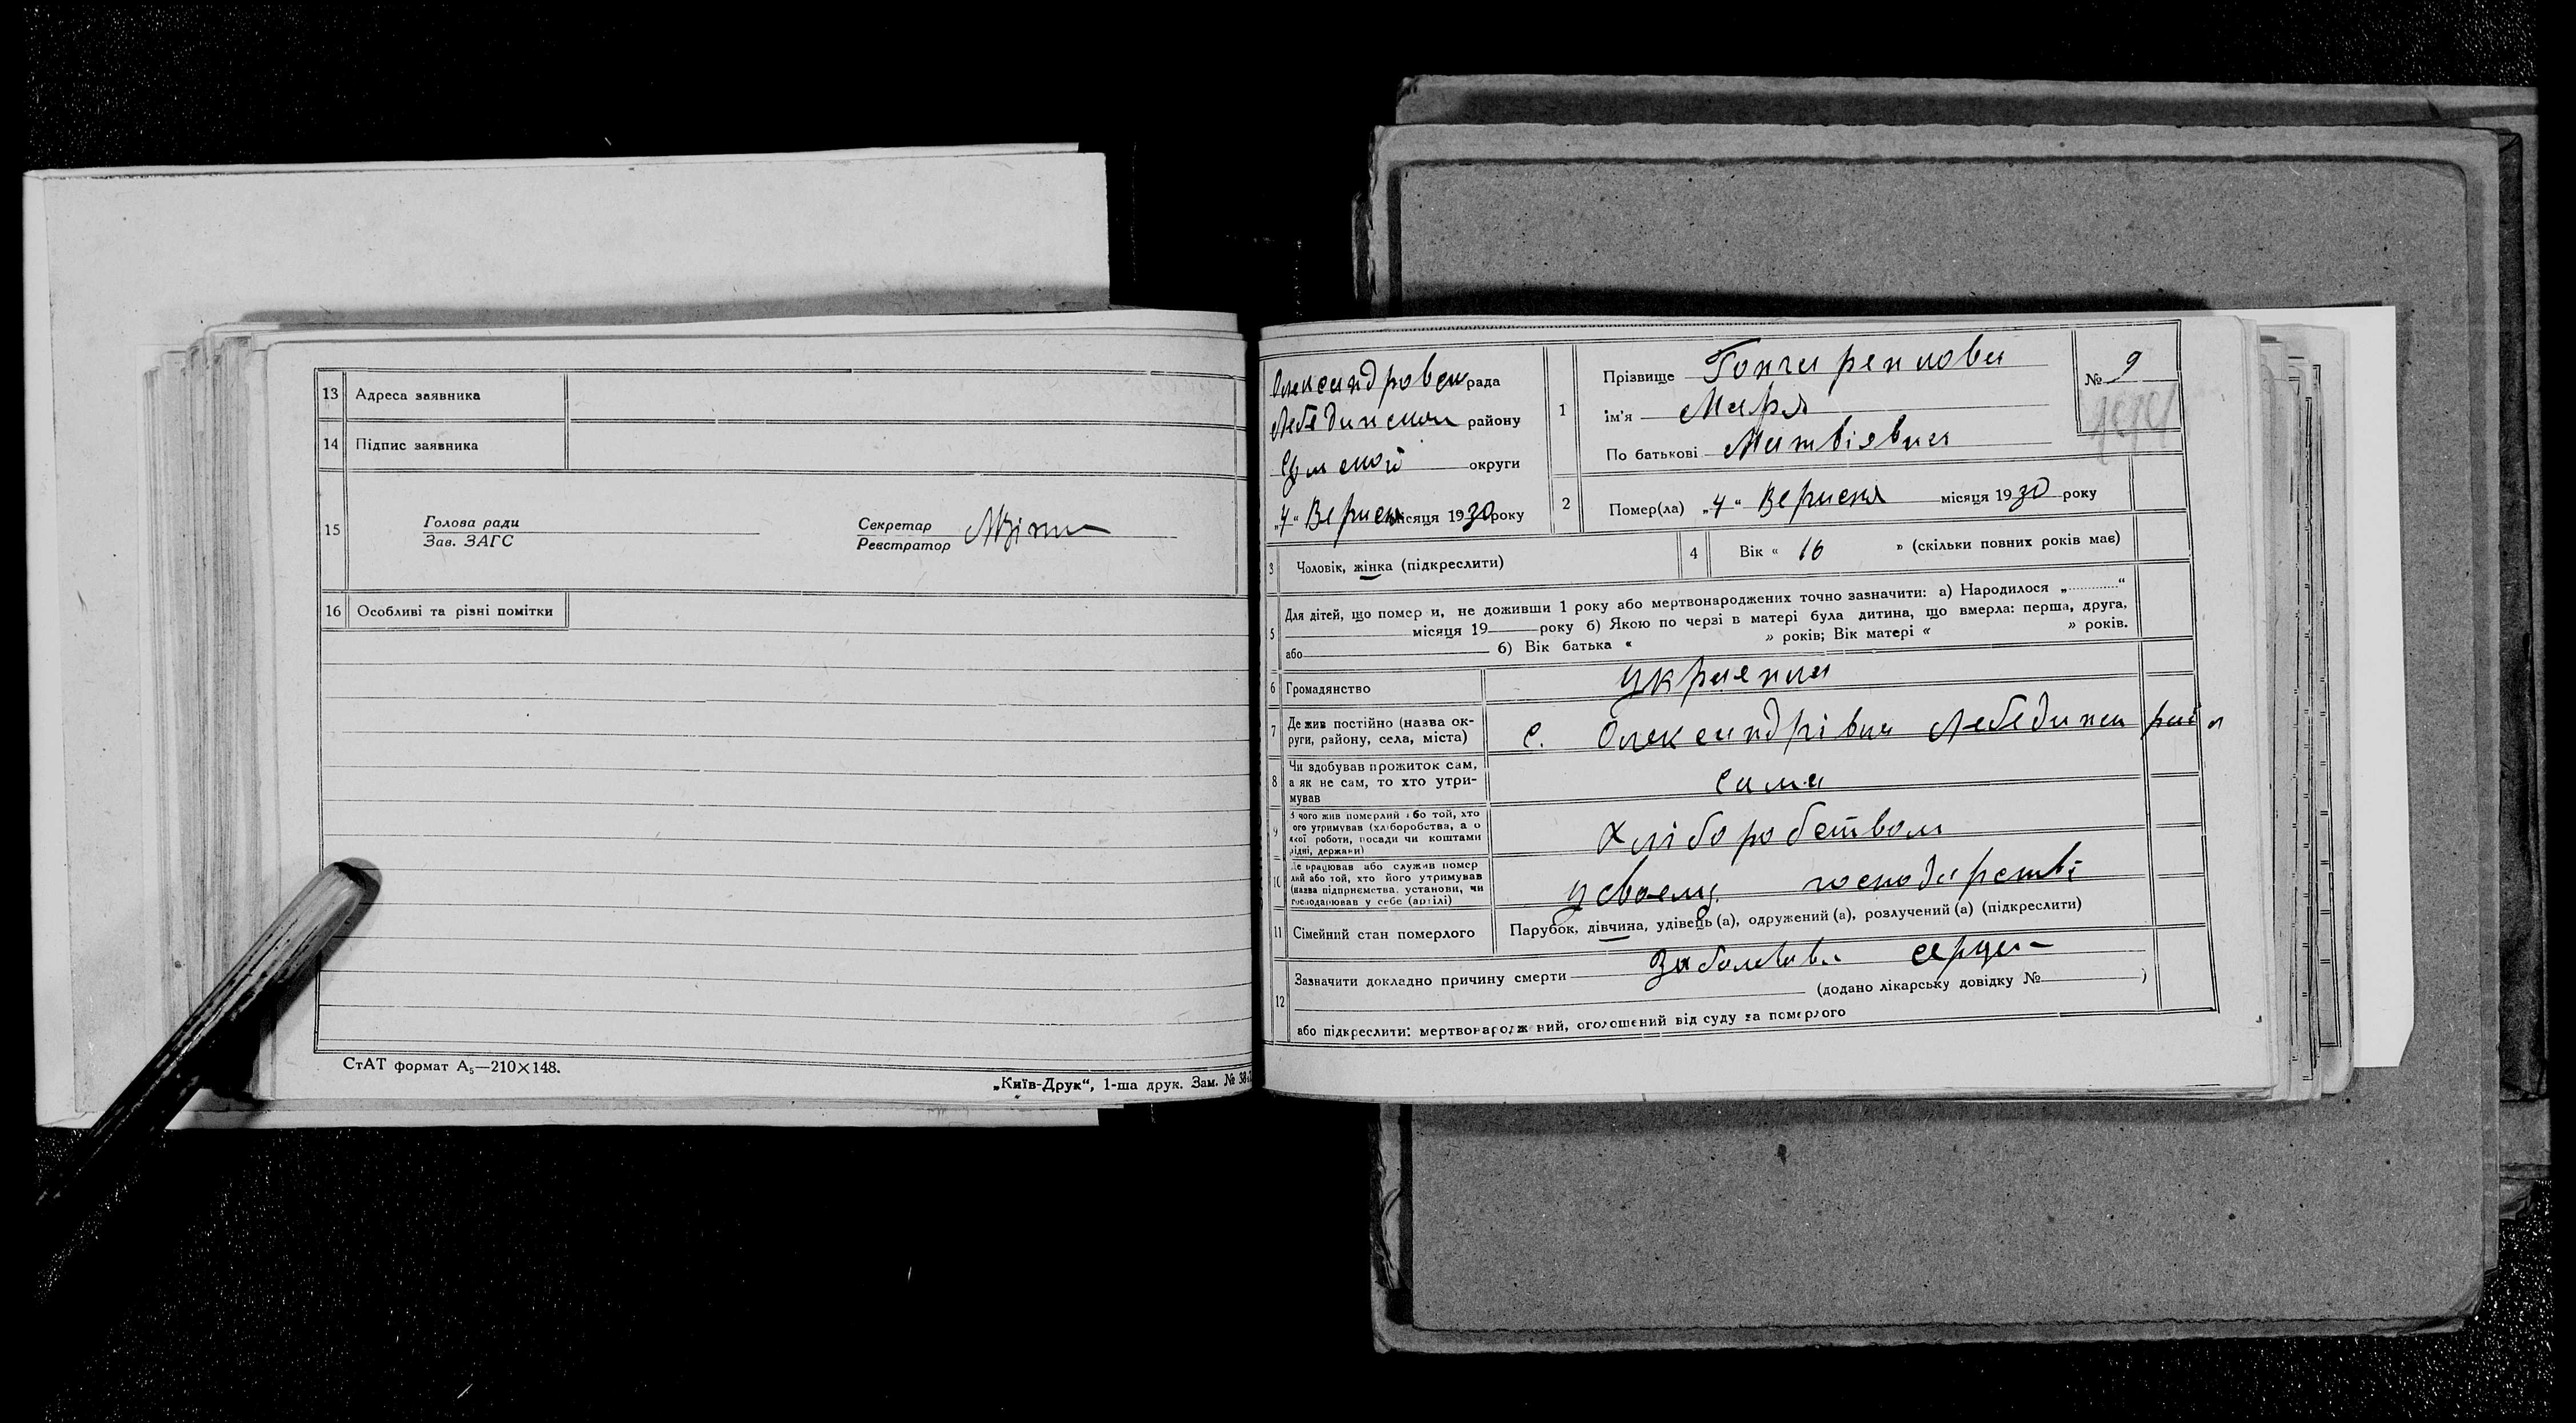 13 Адреса заявника
14 Підпис заявника
15 Голова ради
Зав. ЗАГС
Секретар
Реєстратор
16 Особливі та різні помітки
СтАТ формат А₅—210×148.
„Київ-Друк“, 1-ша друк. Зам. №
Олександровськ рада
Лебединськ району
округи
„4“ Вересня місяця 1930 року
1 Прізвище Гончаренкова
ім'я Марія
По батькові Матвіївна
№ 9
2 Помер(ла) „4“ Вересня місяця 1930 року
3 Чоловік, жінка (підкреслити)
4 Вік « 16 » (скільки повних років має)
5 Для дітей, що померли, не доживши 1 року або мертвонароджених точно зазначити: а) Народилося „..........“
місяця 19 року б) Якою по черзі в матері була дитина, що вмерла: перша, друга,
або 6) Вік батька « » років; Вік матері « » років.
6 Громадянство українка
7 Де жив постійно (назва ок-
руги, району, села, міста) с. Олександрівка Лебединськ район
8 Чи здобував прожиток сам,
а як не сам, то хто утри-
мував сама
9 З чого жив померлий або той, хто
його утримував (хліборобства, а о
якої роботи, посади чи коштами
рідні, держави) Хліборобством
10 Де працював або служив помер
лий або той, хто його утримував
(назва підприємства, установи, чи
господарював у себе (артілі) у своему господарстві
11 Сімейний стан померлого Парубок, дівчина, удівець(а), одружений(а), розлучений(а) (підкреслити)
12 Зазначити докладно причину смерти серця
(додано лікарську довідку № )
або підкреслити: мертвонароджений, оголошений від суду за померлого